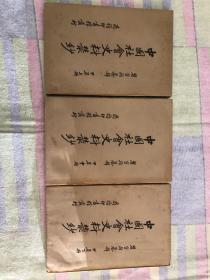 中國社會史料叢鈔
瞿宣穎纂輯
甲集上冊
商務印書館發行
中國社會史料叢鈔
瞿宣穎纂輯
甲集中冊
商務印書館發行
中國社會史料叢鈔
瞿宣穎纂輯
甲集下冊
商務印書館發行